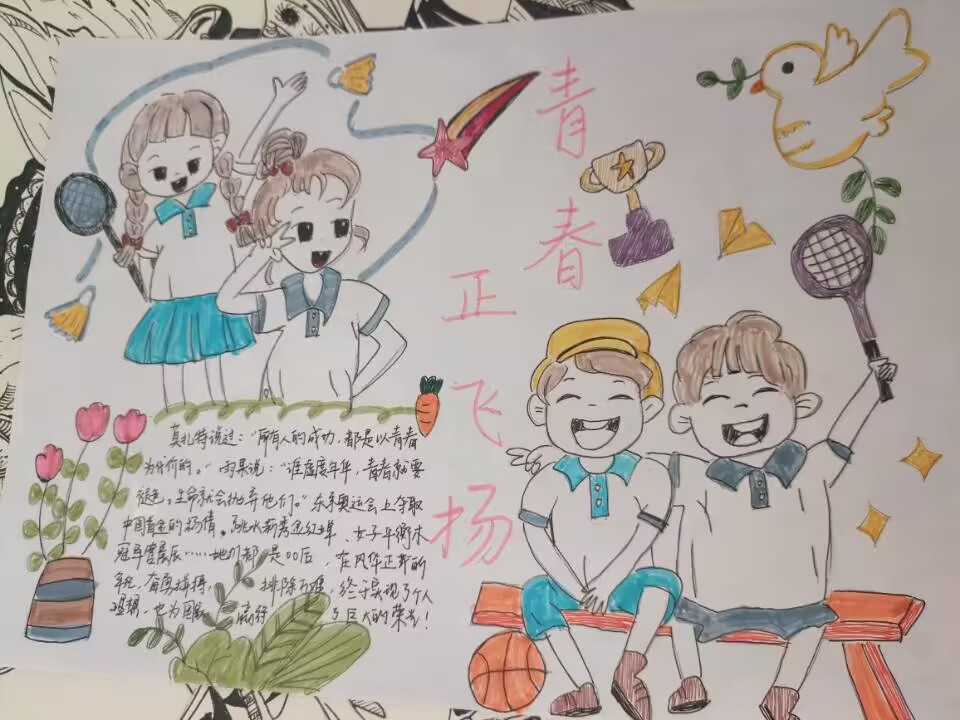 青春
正飞扬
莫扎特说过：“所有人的成功，都是以青春
为代价的。”雨果说：“谁虚度年华，青春就要
褪色，生命就会抛弃他们。”东京奥运会上夺取
中国首金的杨倩。跳水新秀全红婵、女子平衡木
冠军管晨辰……她们都是00后，在风华正茂的
年纪，奋勇拼搏，排除万难，终于实现了个人
理想，也为国家 巨大的荣光！